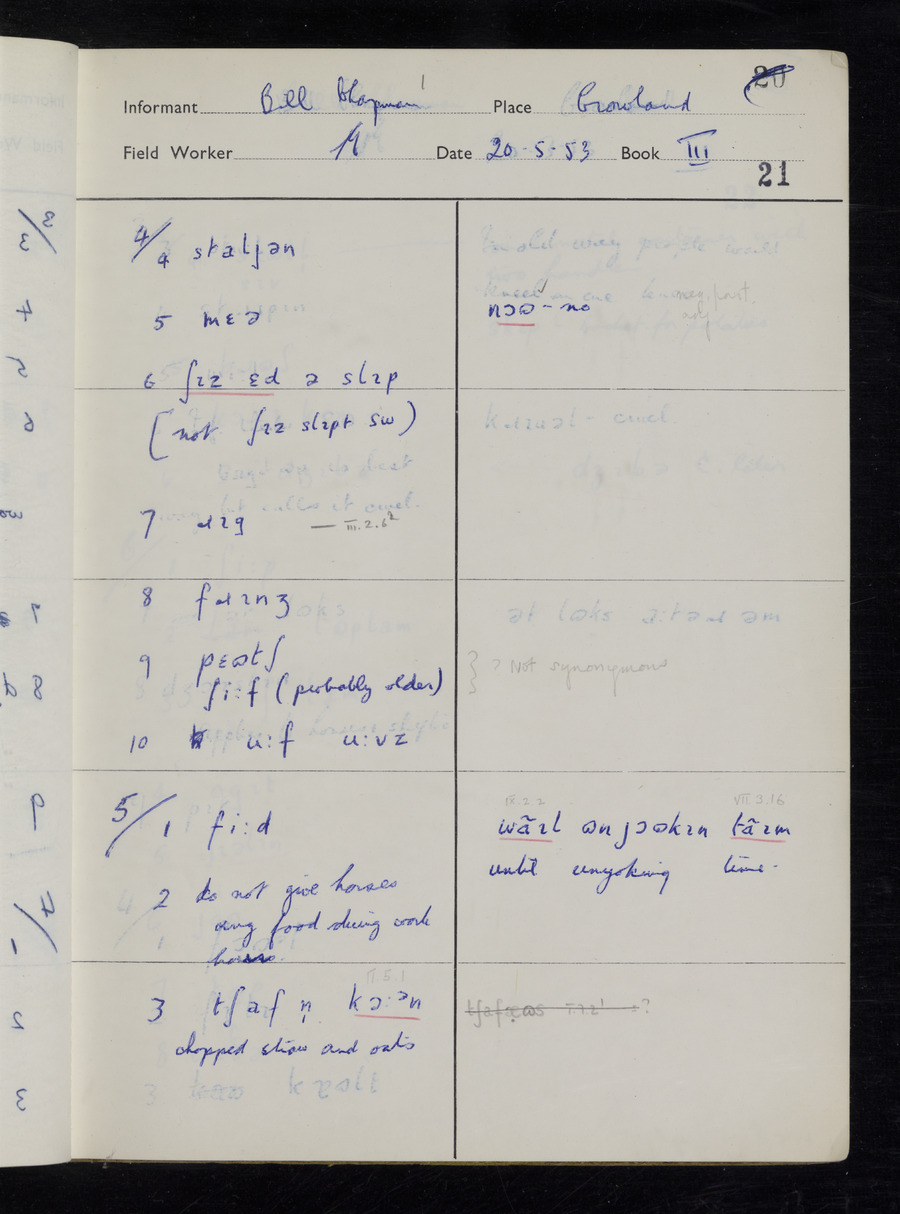 20
Informant Bill Chapman Place Crowland
Field Worker M Date 20-5-53 Book III
21
4/4 staljən
5 mɛə
nɔɷ - no
6 ʃɪz ɛd ə slɪp
(not ʃɪz slɪpt sw)
7 ɹɪg — III.2.6²
8 fɹɪnʒ
9 pɛɷtʃ
ʃi:f (probably older)
? Not synonymous
10 u:f u:vz
5/1 fi:d
IX.2.2 VII.3.16
wãɪl ɷnjɔɷkɪn tãɪm
until unyoking time.
2 do not give horses
any food during work
hours.
II.5.1
3 tʃaf n̩ kɔ:ən
chopped straw and oats